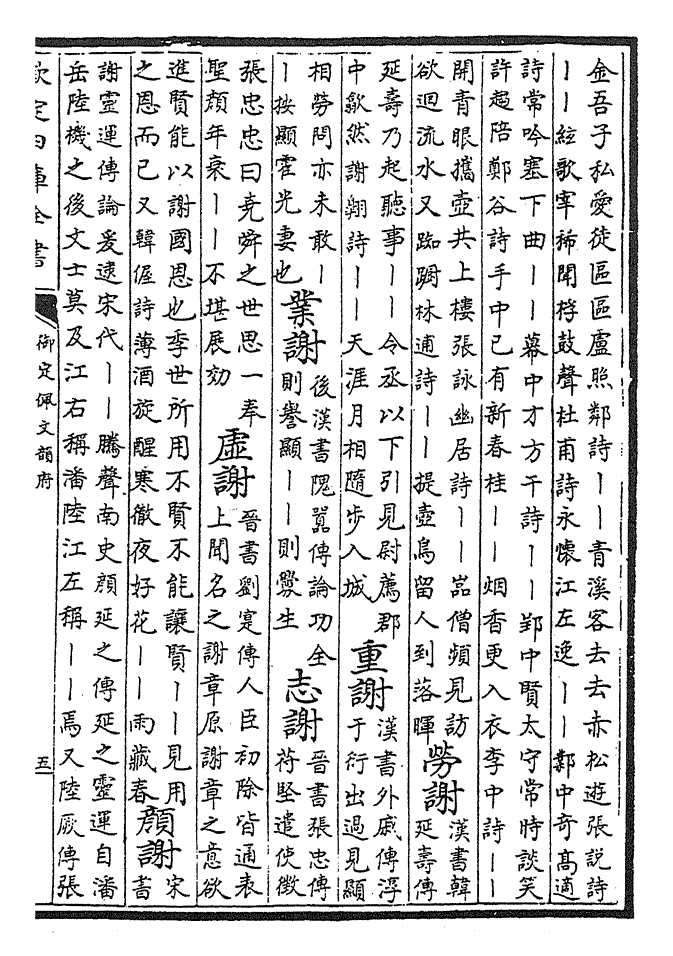 金吾子私愛徒區區盧照鄰詩丨丨青溪客去去赤松遊張說詩
丨丨絃歌宰稀聞桴鼓聲杜甫詩永懷江左逸丨丨鄴中奇高適
詩常吟塞下曲丨丨幕中才方干詩丨丨郢中賢太守常時談笑
許趨陪鄭谷詩手中已有新春桂丨丨烟香更入衣李中詩丨丨
開青眼攜壺共上樓張詠幽居詩丨丨嵓僧頻見訪
欲迴流水又踟蹰林逋詩丨丨提壺鳥留人到落暉
勞謝
漢書韓
延壽傳
延壽乃起聽事丨丨令丞以下引見尉薦郡
中歙然謝翱詩丨丨天涯月相隨步入城
重謝
漢書外戚傳淳
于衍出過見顯
相勞問亦未敢丨
丨按顯霍光妻也
業謝
後漢書隗囂傳論功全
則譽顯丨丨則釁生
志謝
晉書張忠傳
苻堅遣使徵
張忠忠曰堯舜之世思一奉
聖顏年衰丨丨不堪展効
虛謝
晉書劉寔傳人臣初除皆通表
上聞名之謝章原謝章之意欲
進賢能以謝國恩也季世所用不賢不能讓賢丨丨見用
之恩而已又韓偓詩薄酒旋醒寒徹夜好花丨丨雨藏春
顏謝
宋
書
謝靈運傳論爰逮宋代丨丨騰聲南史顏延之傳延之靈運自潘
岳陸機之後文士莫及江右稱潘陸江左稱丨丨焉又陸厥傳張
欽定四庫全書
御定佩文韻府
五